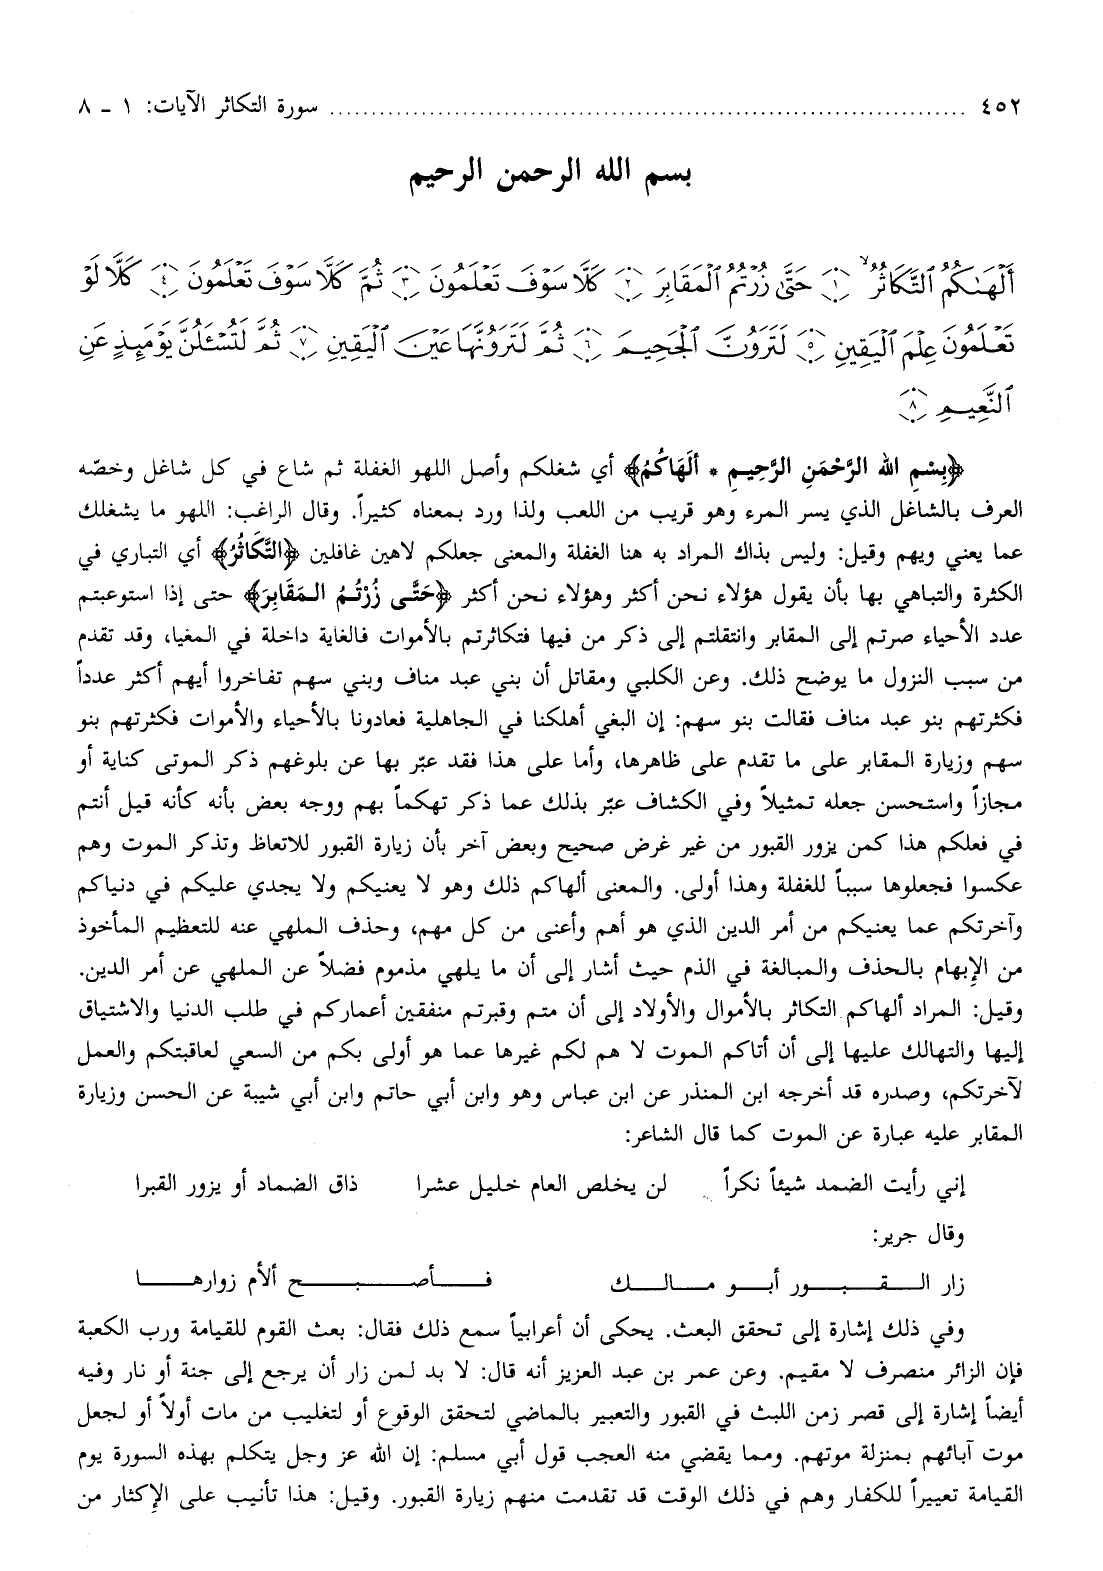 ٤٥٢ ........ سورة التكاثر الآيات: ١ ـ ٨
بسم الله الرحمن الرحيم
أَلْهَىٰكُمُ ٱلتَّكَاثُرُ ۙ ﴿١﴾ حَتَّىٰ زُرْتُمُ ٱلْمَقَابِرَ ﴿٢﴾ كَلَّا سَوْفَ تَعْلَمُونَ ﴿٣﴾ ثُمَّ كَلَّا سَوْفَ تَعْلَمُونَ ﴿٤﴾ كَلَّا لَوْ
تَعْلَمُونَ عِلْمَ ٱلْيَقِينِ ﴿٥﴾ لَتَرَوُنَّ ٱلْجَحِيمَ ﴿٦﴾ ثُمَّ لَتَرَوُنَّهَا عَيْنَ ٱلْيَقِينِ ﴿٧﴾ ثُمَّ لَتُسْـَٔلُنَّ يَوْمَئِذٍ عَنِ
ٱلنَّعِيمِ ﴿٨﴾
﴿بِسْمِ الله الرَّحْمَنِ الرَّحِيمِ * ألَهَاكُمُ﴾ أي شغلكم وأصل اللهو الغفلة ثم شاع في كل شاغل وخصّه
العرف بالشاغل الذي يسر المرء وهو قريب من اللعب ولذا ورد بمعناه كثيراً. وقال الراغب: اللهو ما يشغلك
عما يعني ويهم وقيل: وليس بذاك المراد به هنا الغفلة والمعنى جعلكم لاهين غافلين ﴿التَّكَاثُرُ﴾ أي التباري في
الكثرة والتباهي بها بأن يقول هؤلاء نحن أكثر وهؤلاء نحن أكثر ﴿حَتَّى زُرْتُمُ المَقَابِرَ﴾ حتى إذا استوعبتم
عدد الأحياء صرتم إلى المقابر وانتقلتم إلى ذكر من فيها فتكاثرتم بالأموات فالغاية داخلة في المغيا، وقد تقدم
من سبب النزول ما يوضح ذلك. وعن الكلبي ومقاتل أن بني عبد مناف وبني سهم تفاخروا أيهم أكثر عدداً
فكثرتهم بنو عبد مناف فقالت بنو سهم: إن البغي أهلكنا في الجاهلية فعادونا بالأحياء والأموات فكثرتهم بنو
سهم وزيارة المقابر على ما تقدم على ظاهرها، وأما على هذا فقد عبّر بها عن بلوغهم ذكر الموتى كناية أو
مجازاً واستحسن جعله تمثيلاً وفي الكشاف عبّر بذلك عما ذكر تهكماً بهم ووجه بعض بأنه كأنه قيل أنتم
في فعلكم هذا كمن يزور القبور من غير غرض صحيح وبعض آخر بأن زيارة القبور للاتعاظ وتذكر الموت وهم
عكسوا فجعلوها سبباً للغفلة وهذا أولى. والمعنى ألهاكم ذلك وهو لا يعنيكم ولا يجدي عليكم في دنياكم
وآخرتكم عما يعنيكم من أمر الدين الذي هو أهم وأعنى من كل مهم، وحذف الملهي عنه للتعظيم المأخوذ
من الإبهام بالحذف والمبالغة في الذم حيث أشار إلى أن ما يلهي مذموم فضلاً عن الملهي عن أمر الدين.
وقيل: المراد ألهاكم التكاثر بالأموال والأولاد إلى أن متم وقبرتم منفقين أعماركم في طلب الدنيا والاشتياق
إليها والتهالك عليها إلى أن أتاكم الموت لا هم لكم غيرها عما هو أولى بكم من السعي لعاقبتكم والعمل
لآخرتكم، وصدره قد أخرجه ابن المنذر عن ابن عباس وهو وابن أبي حاتم وابن أبي شيبة عن الحسن وزيارة
المقابر عليه عبارة عن الموت كما قال الشاعر:
إني رأيت الضمد شيئاً نكراً لن يخلص العام خليل عشرا ذاق الضماد أو يزور القبرا
وقال جرير:
زار القبور أبو مالك فأصبح ألأم زوارها
وفي ذلك إشارة إلى تحقق البعث. يحكى أن أعرابياً سمع ذلك فقال: بعث القوم للقيامة ورب الكعبة
فإن الزائر منصرف لا مقيم. وعن عمر بن عبد العزيز أنه قال: لا بد لمن زار أن يرجع إلى جنة أو نار وفيه
أيضاً إشارة إلى قصر زمن اللبث في القبور والتعبير بالماضي لتحقق الوقوع أو لتغليب من مات أولاً أو لجعل
موت آبائهم بمنزلة موتهم. ومما يقضي منه العجب قول أبي مسلم: إن الله عز وجل يتكلم بهذه السورة يوم
القيامة تعييراً للكفار وهم في ذلك الوقت قد تقدمت منهم زيارة القبور. وقيل: هذا تأنيب على الإكثار من